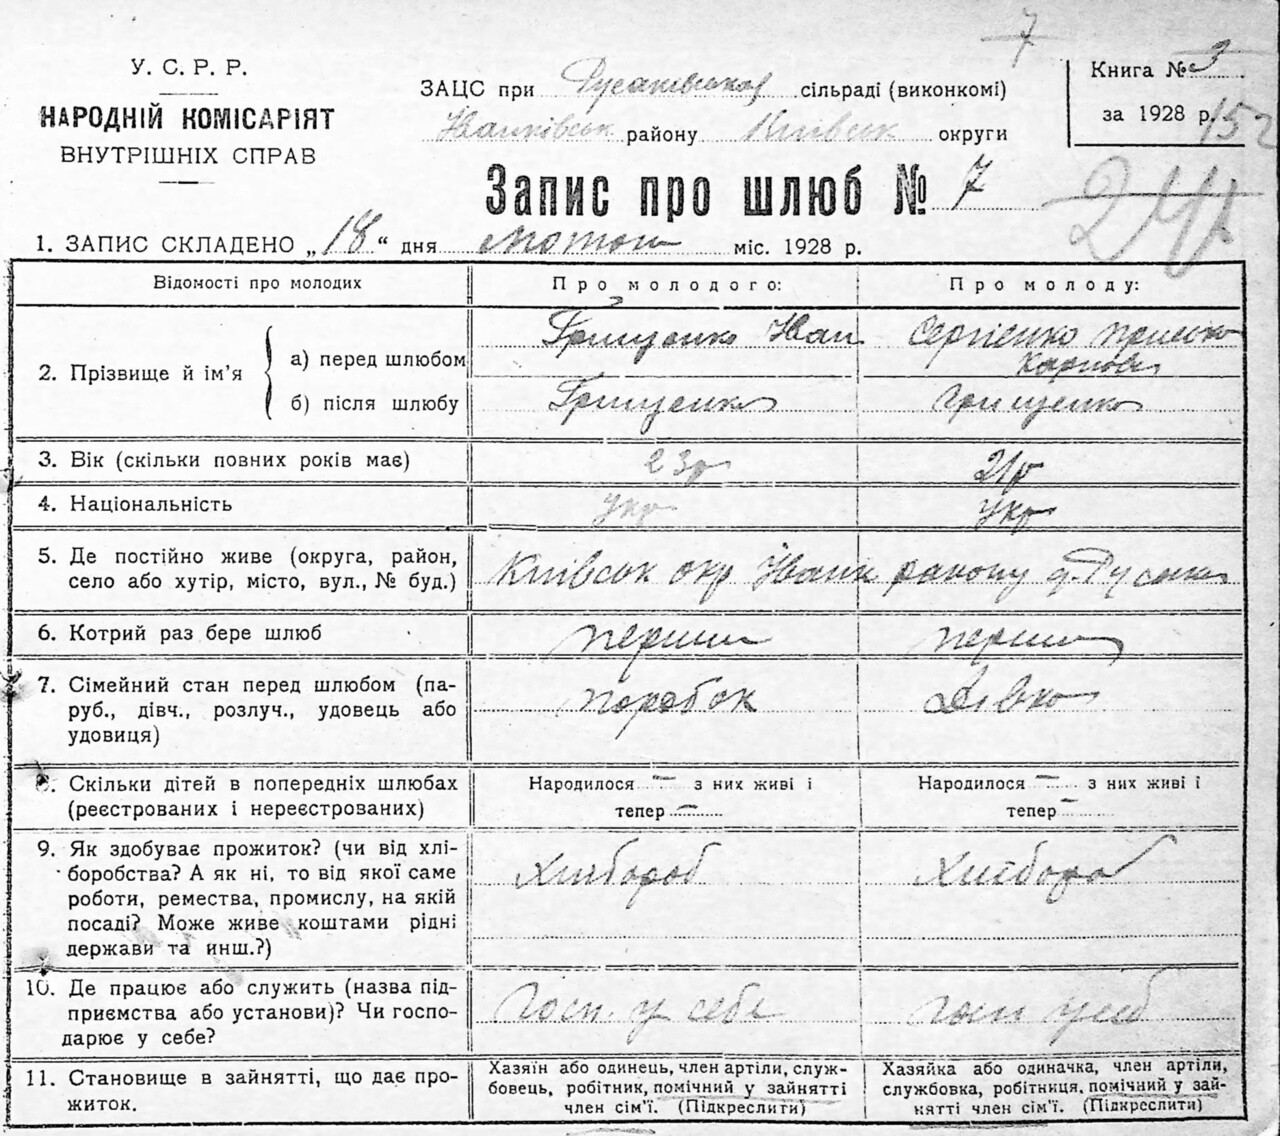 7
У. С. Р. Р.
НАРОДНІЙ КОМІСАРІЯТ
ВНУТРІШНІХ СПРАВ
ЗАЦС при Русаківській сільраді (виконкомі)
Іванківськ району Київськ округи
Книга № 3
за 1928 р.
152
Запис про шлюб № 7
241
1. ЗАПИС СКЛАДЕНО „18“ дня лютого міс. 1928 р.
Відомості про молодих
Про молодого:
Про молоду:
2. Прізвище й ім’я
а) перед шлюбом
Грищенко Іван
Сергієнко Приська
Карпова
б) після шлюбу
Грищенко
Грищенко
3. Вік (скільки повних років має)
23р
21р
4. Національність
Укр
Укр
5. Де постійно живе (округа, район,
село або хутір, місто, вул., № буд.)
Київськ окр Іванк району с. Русаки
6. Котрий раз бере шлюб
перший
перший
7. Сімейний стан перед шлюбом (па-
руб., дівч., розлуч., удовець або
удовиця)
поробок
Дівка
8. Скільки дітей в попередніх шлюбах
(реєстрованих і нереєстрованих)
Народилося — з них живі і
тепер —
Народилося — з них живі і
тепер —
9. Як здобуває прожиток? (чи від хлі-
боробства? А як ні, то від якої саме
роботи, ремества, промислу, на якій
посаді? Може живе коштами рідні
держави та инш.?)
Хлібороб
Хлібороб
10. Де працює або служить (назва під-
приємства або установи)? Чи госпо-
дарює у себе?
Госп. у себе
госп у себ
11. Становище в зайнятті, що дає про-
житок.
Хазяїн або одинець, член артіли, служ-
бовець, робітник, помічний у зайнятті
член сім’ї. (Підкреслити)
Хазяйка або одиначка, член артіли,
службовка, робітниця, помічний у зай-
нятті член сім’ї. (Підкреслити)